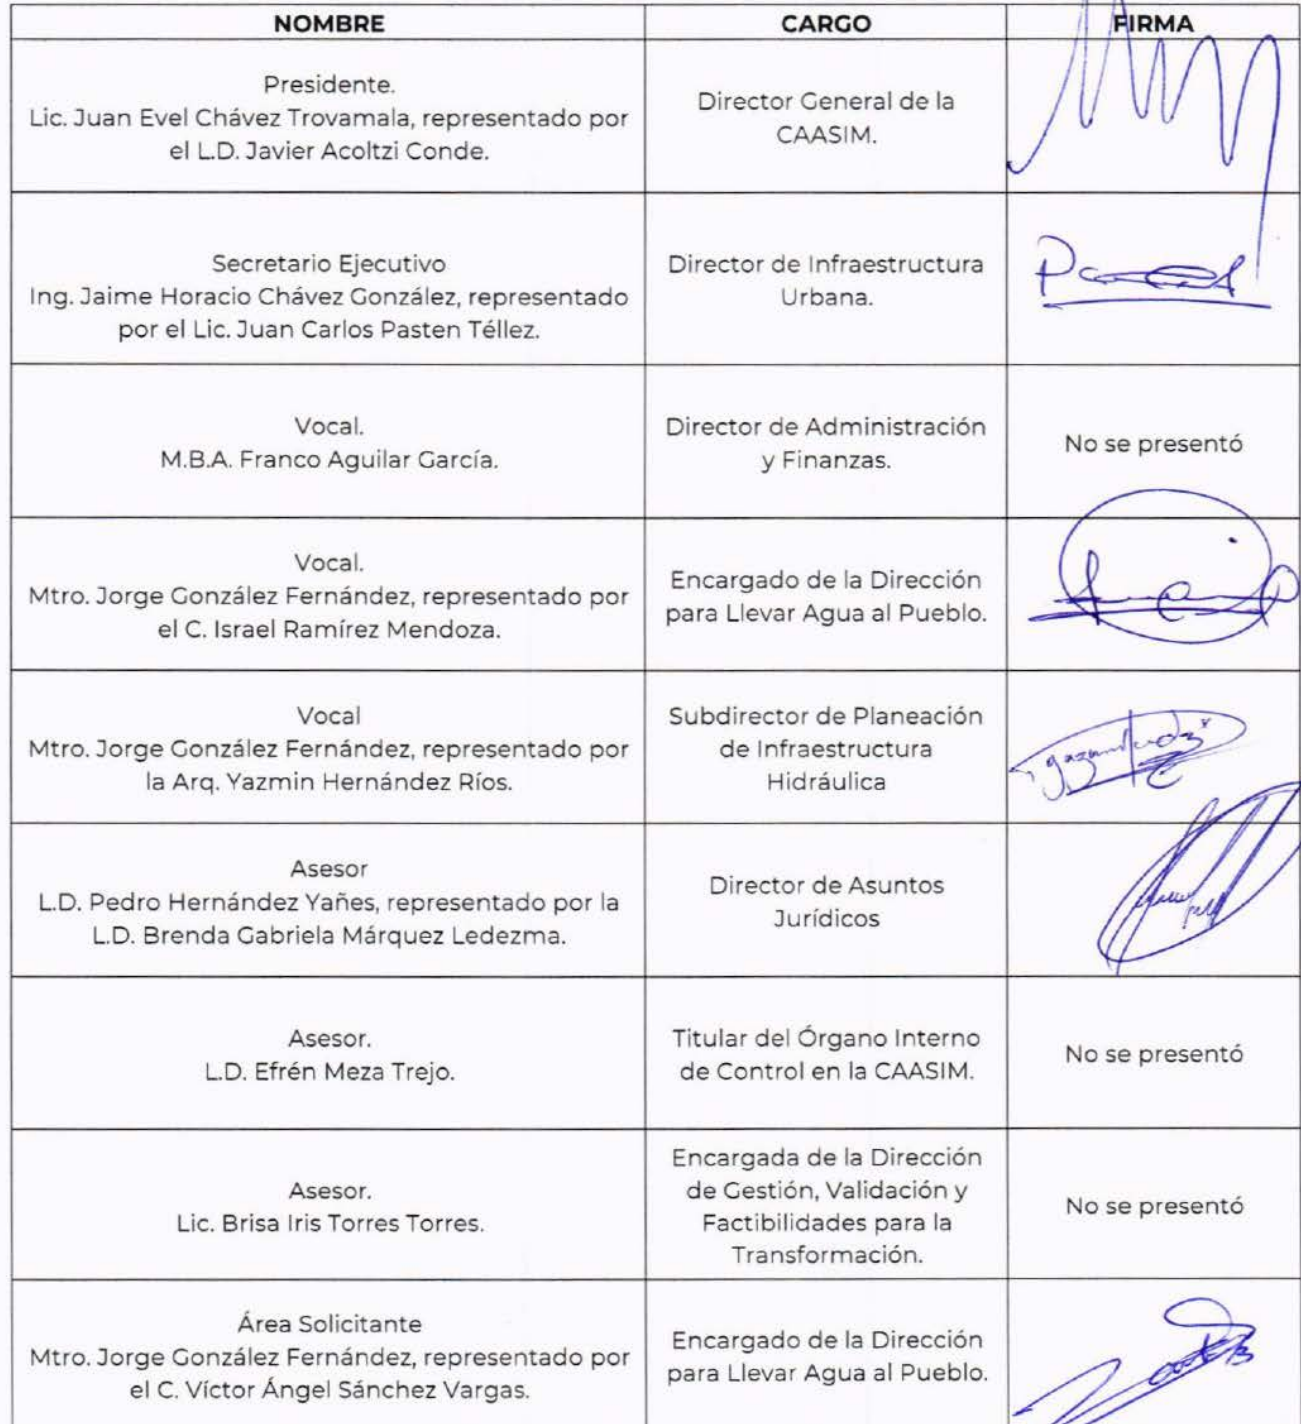 NOMBRE CARGO FIRMA
Presidente.
Lic. Juan Evel Chávez Trovamala, representado por
el L.D. Javier Acoltzi Conde.
Director General de la
CAASIM.
Secretario Ejecutivo
Ing. Jaime Horacio Chávez González, representado
por el Lic. Juan Carlos Pasten Téllez.
Director de Infraestructura
Urbana.
Vocal.
M.B.A. Franco Aguilar García.
Director de Administración
y Finanzas.
No se presentó
Vocal.
Mtro. Jorge González Fernández, representado por
el C. Israel Ramírez Mendoza.
Encargado de la Dirección
para Llevar Agua al Pueblo.
Vocal
Mtro. Jorge González Fernández, representado por
la Arq. Yazmin Hernández Ríos.
Subdirector de Planeación
de Infraestructura
Hidráulica
Asesor
L.D. Pedro Hernández Yañes, representado por la
L.D. Brenda Gabriela Márquez Ledezma.
Director de Asuntos
Jurídicos
Asesor.
L.D. Efrén Meza Trejo.
Titular del Órgano Interno
de Control en la CAASIM.
No se presentó
Asesor.
Lic. Brisa Iris Torres Torres.
Encargada de la Dirección
de Gestión, Validación y
Factibilidades para la
Transformación.
No se presentó
Área Solicitante
Mtro. Jorge González Fernández, representado por
el C. Víctor Ángel Sánchez Vargas.
Encargado de la Dirección
para Llevar Agua al Pueblo.